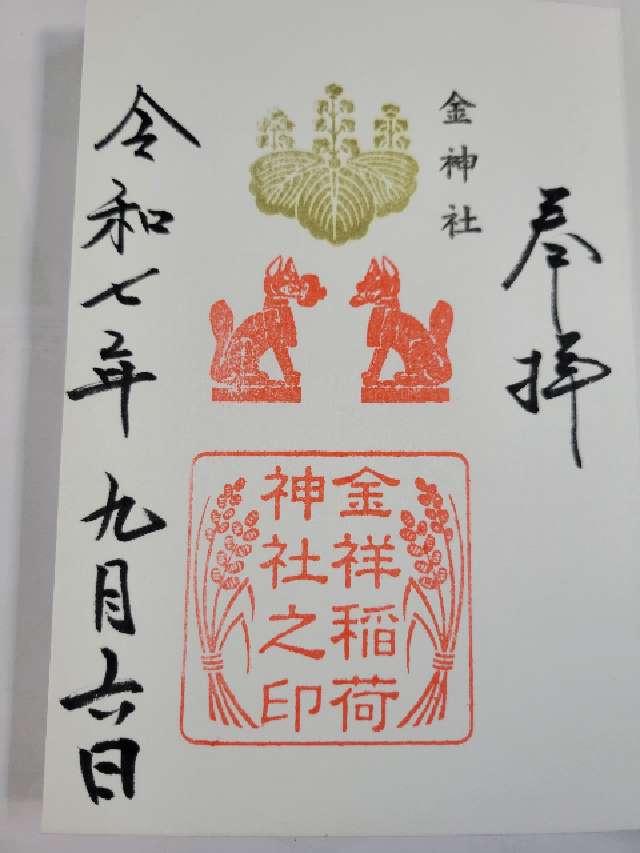 奉拝
金神社
金祥稲荷
神社之印
令和七年九月六日